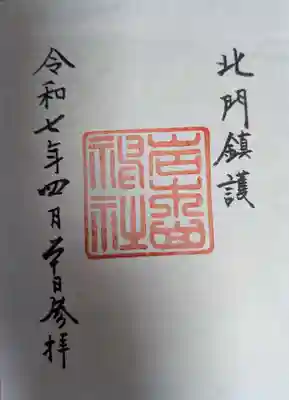 北門鎮護
岩木山
神社
令和七年四月日参拝